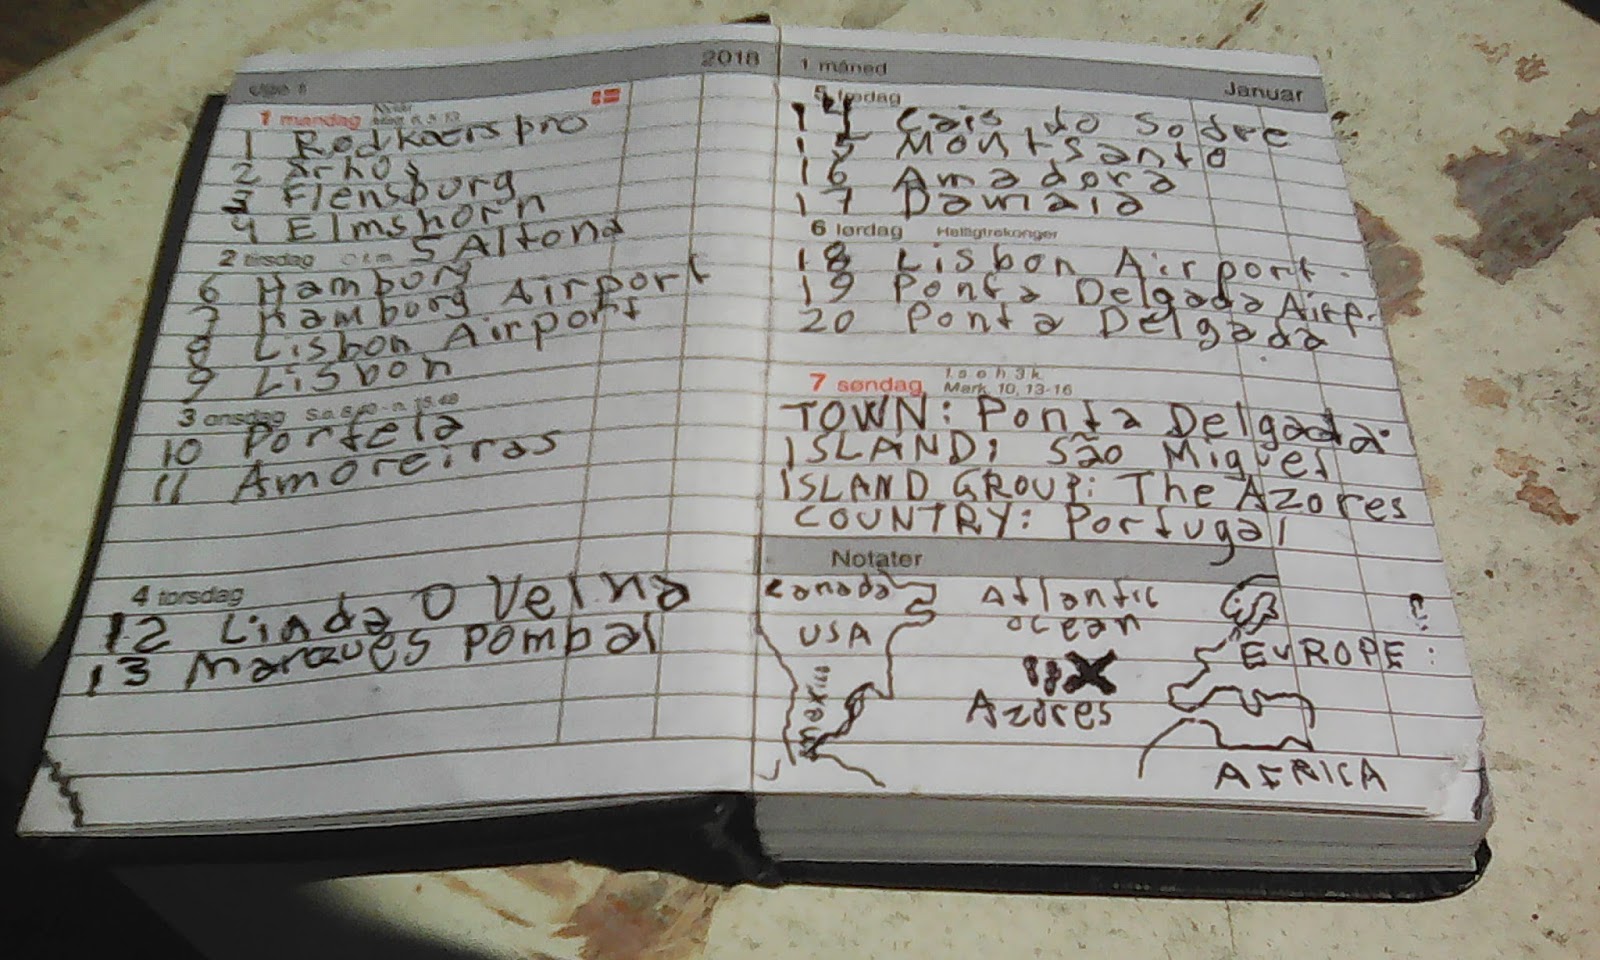 Uge 1
2018
1 mandag
1 Rødkærsbro
2 Århos
3 Flensburg
4 Elmshorn
5 Altona
2 tirsdag
6 Hamborg
7 Hamborg Airport
8 Lisbon Airport
9 Lisbon
3 onsdag
10 Portela
11 Amoreiras
4 torsdag
12 Linda O Velha
13 Marques Pombal
1 måned
Januar
5 fredag
14 Cais do Sodre
15 Montsanto
16 Amadora
17 Damaia
6 lørdag Helligtrekonger
18 Lisbon Airport.
19 Ponta Delgada Airp.
20 Ponta Delgada
7 søndag
1. s. e. h. 3 k.
Mark. 10, 13-16
TOWN: Ponta Delgada.
ISLAND: São Miguel
ISLAND GROUP: The Azores
COUNTRY: Portugal
Notater
Canada
Atlantic
ocean
USA
EUROPE:
Azores
AFRICA